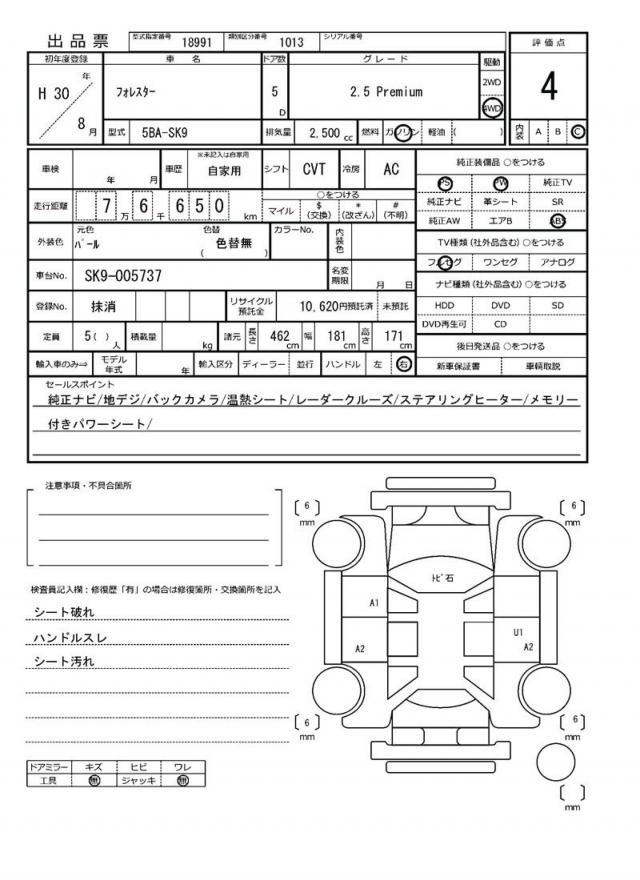 出品票 型式指定番号 18991 類別区分番号 1013 シリアル番号
初年度登録 車名 ドア数 グレード 駆動 評価点
H 30 年 8 月 フォレスター 5 D 2.5 Premium 2WD 4WD 4
型式 5BA-SK9 排気量 2,500 cc 燃料 ガソリン 軽油 ( ) 内装 A B C
車検 年 月 車歴 ※未記入は自家用 自家用 シフト CVT 冷房 AC
走行距離 7 万 6 千 6 5 0 km ○をつける マイル $ (交換) * (改ざん) # (不明)
外装色 元色 パール 色替 ( 色替無 ) カラーNo. 内装色
車台No. SK9-005737 名変期限 月 日
登録No. 抹消 リサイクル預託金 10,620円預託済 未預託
定員 5( ) 人 積載量 kg 諸元 長さ 462 cm 幅 181 cm 高さ 171 cm
輸入車のみ⇒ モデル年式 年 輸入区分 ディーラー 並行 ハンドル 左 右
純正装備品 ○をつける
PS PW 純正TV
純正ナビ 革シート SR
純正AW エアB ABS
TV種類(社外品含む) ○をつける
フルセグ ワンセグ アナログ
ナビ種類(社外品含む) ○をつける
HDD DVD SD
DVD再生可 CD
後日発送品 ○をつける
新車保証書 車輌取説
セールスポイント
純正ナビ/地デジ/バックカメラ/温熱シート/レーダークルーズ/ステアリングヒーター/メモリー
付きパワーシート/
注意事項・不具合箇所
検査員記入欄：修復歴「有」の場合は修復箇所・交換箇所を記入
シート破れ
ハンドルスレ
シート汚れ
ドアミラー キズ ヒビ ワレ
工具 無 ジャッキ 無
[ 6 ] mm
[ 6 ] mm
トビ石
A1
U1
A2
A2
[ 6 ] mm
[ 6 ] mm
[ ] mm